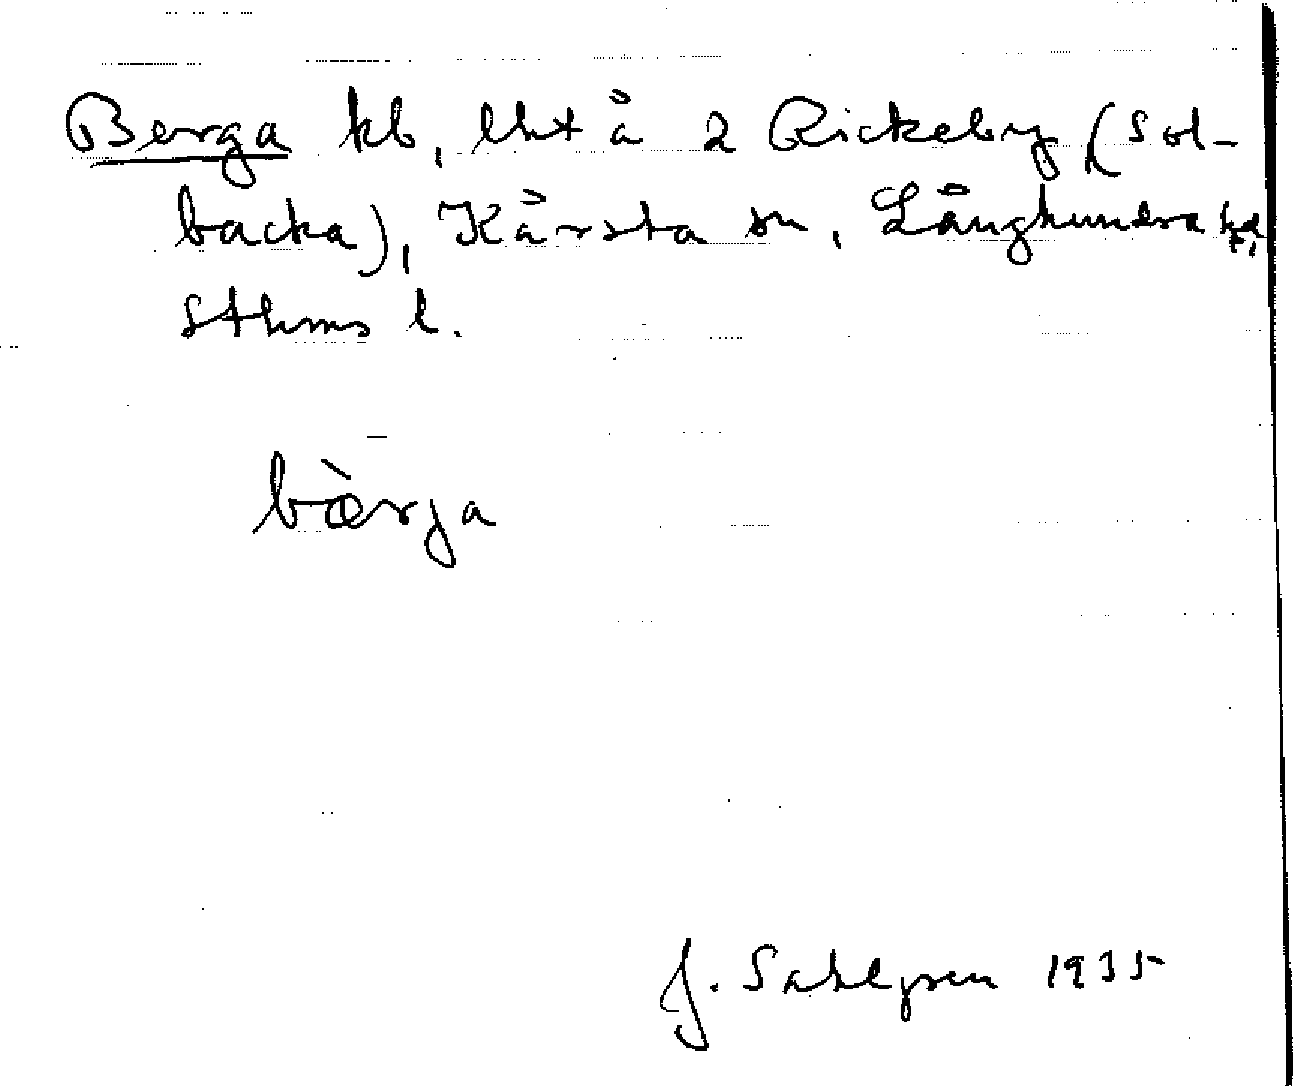 Berga kb, lht å 2 Rickeby (Sol-
backa), Kårsta sn, Långhundra hd,
Sthms l.
bæ̀rja
J. Sahlgren 1935